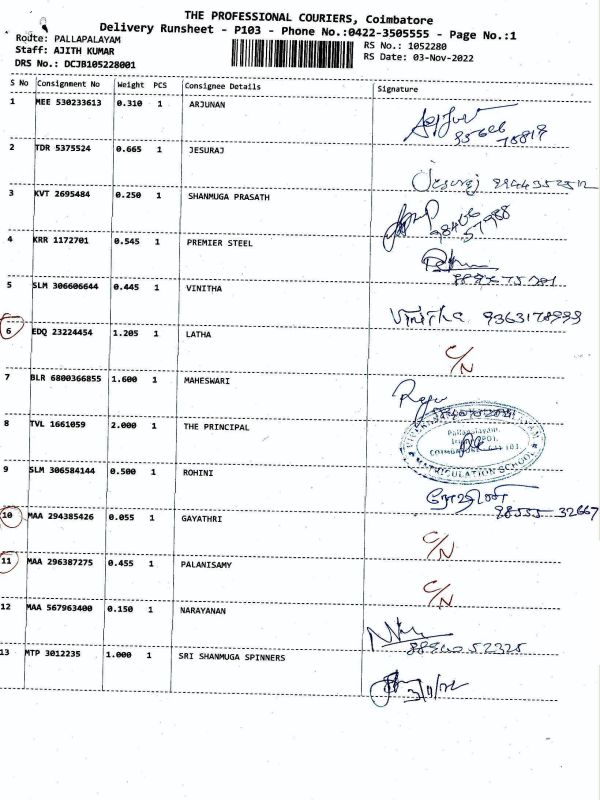 THE PROFESSIONAL COURIERS, Coimbatore
Delivery Runsheet - P103 - Phone No.:0422-3505555 - Page No.:1
Route: PALLAPALAYAM
RS No.: 1052280
Staff: AJITH KUMAR
RS Date: 03-Nov-2022
DRS No.: DCJB105228001
S No Consignment No Weight PCS Consignee Details Signature
1 MEE 530233613 0.310 1 ARJUNAN
2 TDR 5375524 0.665 1 JESURAJ
Jesuraj
3 KVT 2695484 0.250 1 SHANMUGA PRASATH
4 KRR 1172701 0.545 1 PREMIER STEEL
5 SLM 306606644 0.445 1 VINITHA
Vinitha
6 EDQ 23224454 1.205 1 LATHA
C/N
7 BLR 6800366855 1.600 1 MAHESWARI
Raju
8 TVL 1661059 2.000 1 THE PRINCIPAL
Pallapalayam,
MATRICULATION SCHOOL
9 SLM 306584144 0.500 1 ROHINI
98555-32667
10 MAA 294385426 0.055 1 GAYATHRI
C/N
11 MAA 296387275 0.455 1 PALANISAMY
C/N
12 MAA 567963400 0.150 1 NARAYANAN
13 MTP 3012235 1.000 1 SRI SHANMUGA SPINNERS
3/11/22